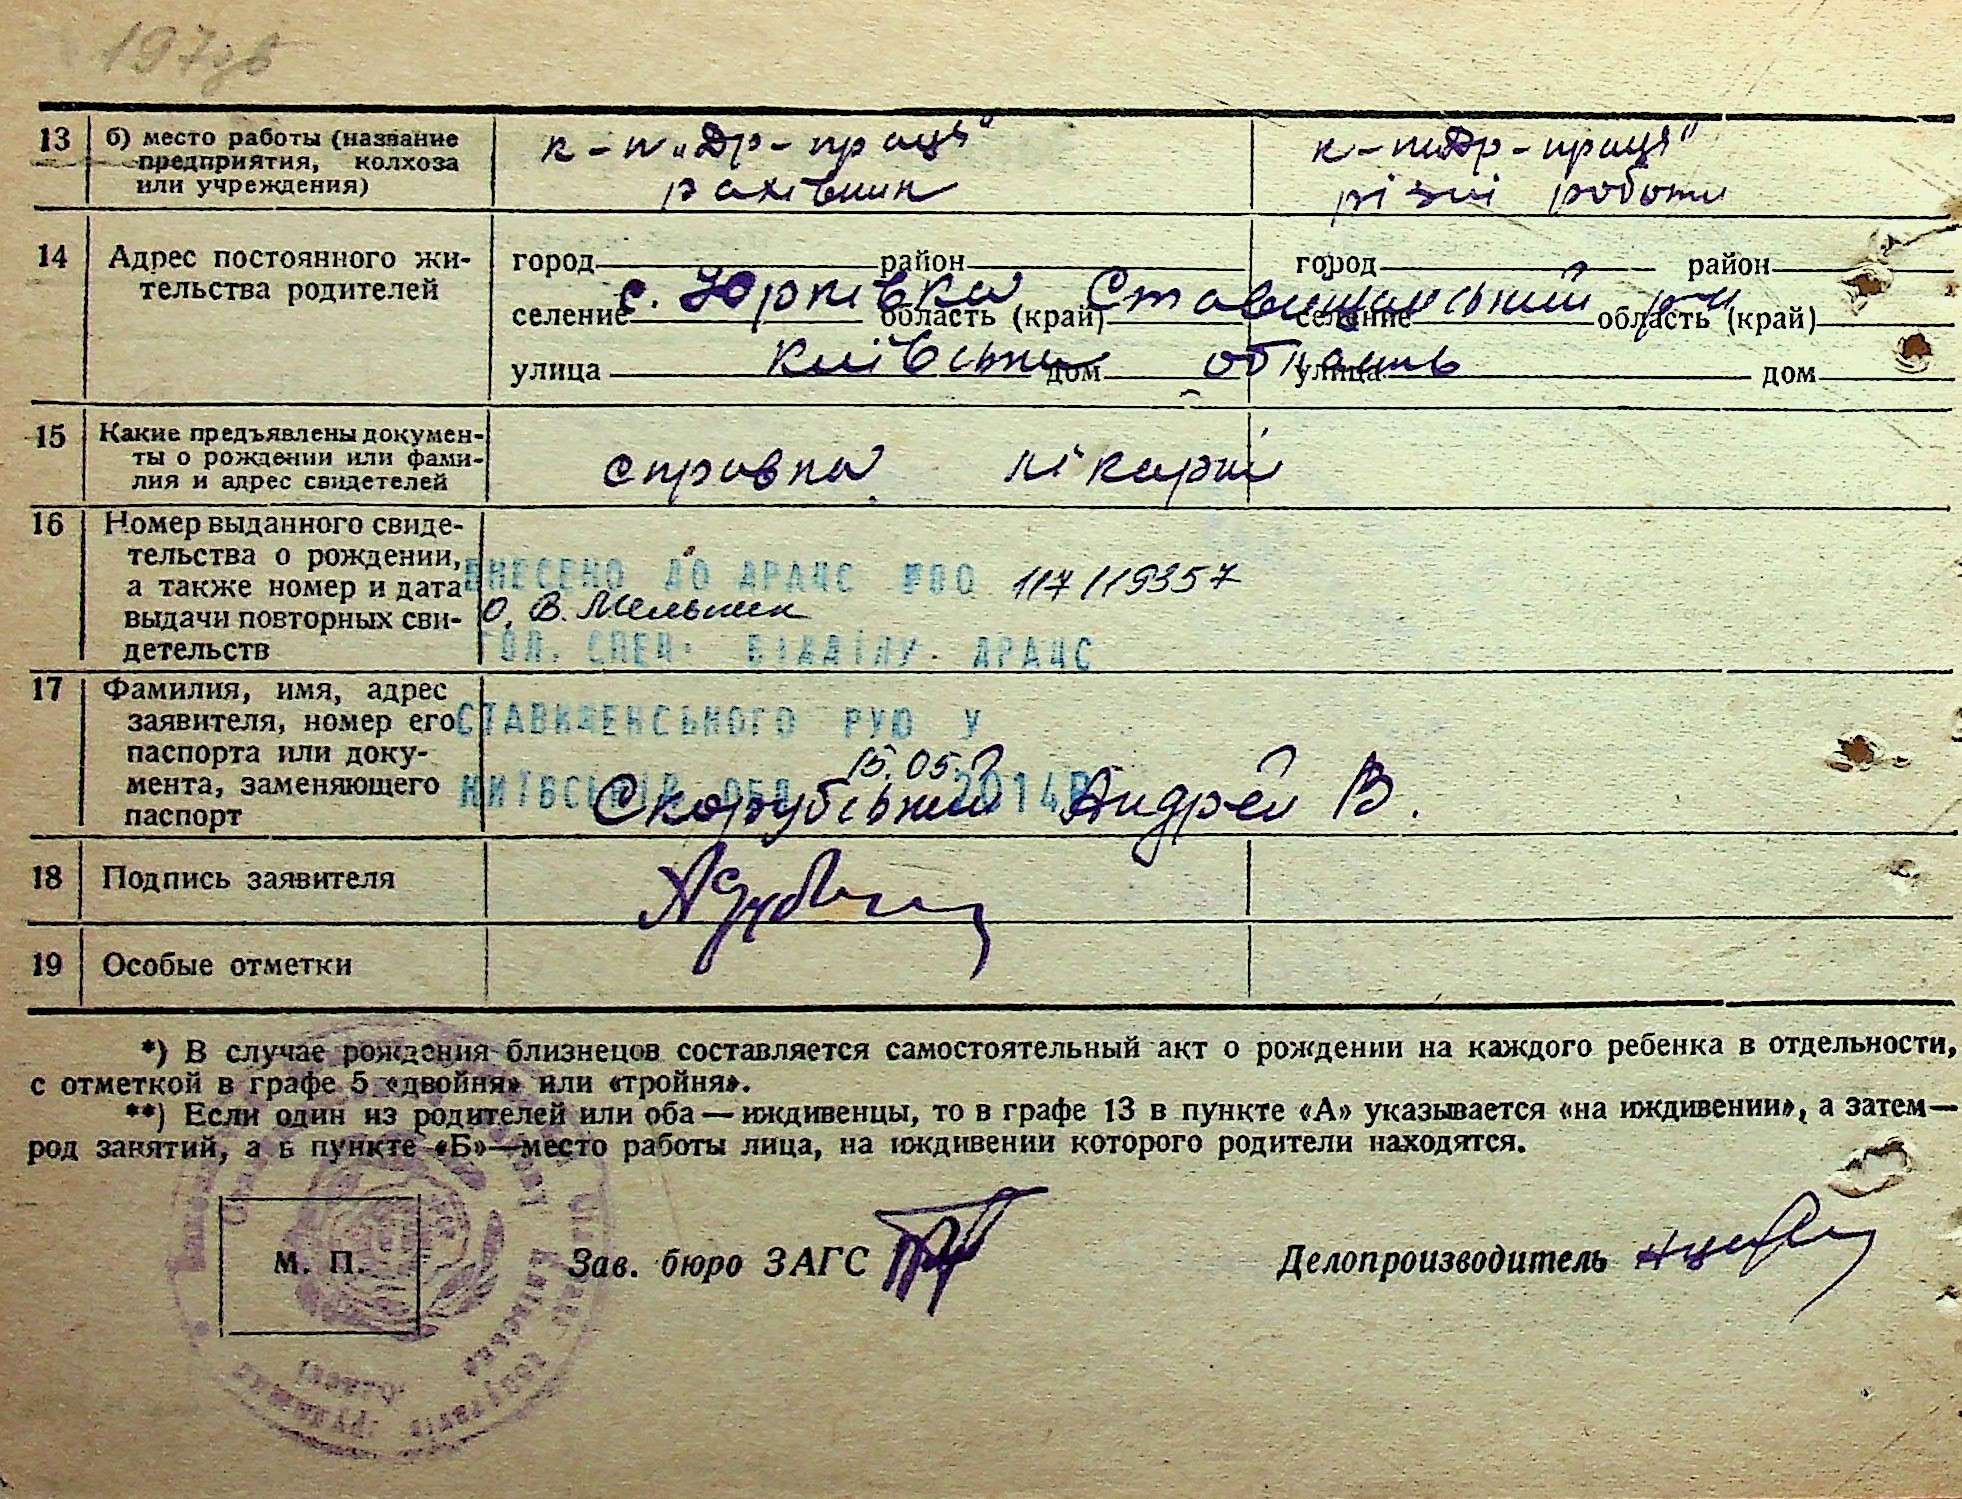 13 б) место работы (название
предприятия, колхоза
или учреждения)
к-п „Др-праця"
рахівник
к-п „Др-праця"
різні роботи
14 Адрес постоянного жи-
тельства родителей
город район город район
с. Юрківка Ставищанський р-н
селение область (край) селение область (край)
Київська область
улица дом улица дом
15 Какие предъявлены докумен-
ты о рождении или фами-
лия и адрес свидетелей
справка лікарні
16 Номер выданного свиде-
тельства о рождении,
а также номер и дата
выдачи повторных сви-
детельств
ВНЕСЕНО ДО ДРАЦС №00 117/119357
О. В. Мельник
ГОЛ. СПЕЦ. ВІДДІЛУ ДРАЦС
17 Фамилия, имя, адрес
заявителя, номер его
паспорта или доку-
мента, заменяющего
паспорт
СТАВИЩЕНСЬКОГО РУЮ У
15.05.
КИЇВСЬКІЙ ОБЛ 2014Р
Скорубський Андрей В.
18 Подпись заявителя
19 Особые отметки
*) В случае рождения близнецов составляется самостоятельный акт о рождении на каждого ребенка в отдельности,
с отметкой в графе 5 «двойня» или «тройня».
**) Если один из родителей или оба — иждивенцы, то в графе 13 в пункте «А» указывается «на иждивении», а затем —
род занятий, а в пункте «Б» — место работы лица, на иждивении которого родители находятся.
М. П. Зав. бюро ЗАГС Делопроизводитель